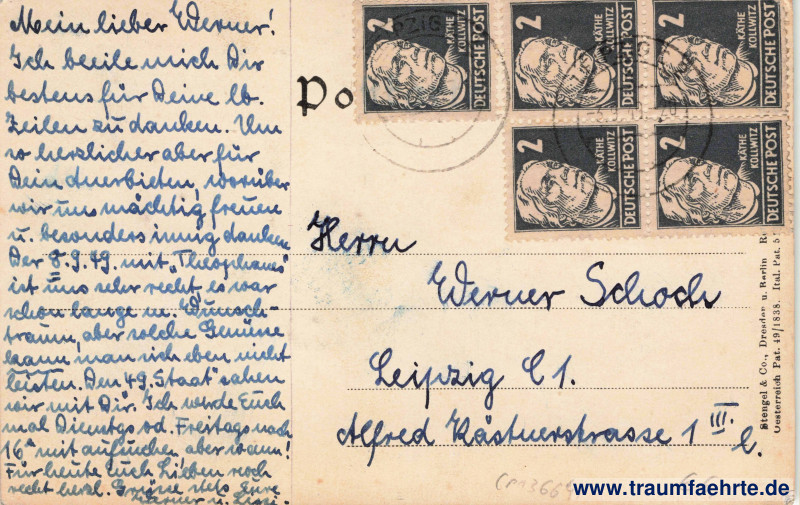 Mein lieber Werner!
Ich beeile mich Dir
bestens für Deine lb.
Zeilen zu danken. Um
so herzlicher aber für
Dein Anerbieten, worüber
wir uns mächtig freuen
u. besonders innig danken
Der 8.9.49. mit „Theophanes"
ist uns sehr recht, es war
schon lange m. Wunsch-
traum, aber solche Genüsse
kann man sich eben nicht
leisten. Den „49. Staat" sahen
wir mit Dir. Ich werde Euch
mal Dienstgs od. Freitags nach
16 mit aufsuchen aber wann!
Für heute Euch Lieben noch
recht herzl. Grüsse stets Eure
Werner u.
Po
2
KÄTHE
KOLLWITZ
DEUTSCHE POST
2
KÄTHE
KOLLWITZ
DEUTSCHE POST
2
KÄTHE
KOLLWITZ
DEUTSCHE POST
2
KÄTHE
KOLLWITZ
DEUTSCHE POST
2
KÄTHE
KOLLWITZ
DEUTSCHE POST
Herrn
Werner Schoch
Leipzig C1.
Alfred Kästnerstrasse 1 III. l.
Stengel & Co., Dresden u. Berlin
Oesterreich Pat. 49/1838. Ital. Pat.
www.traumfaehrte.de